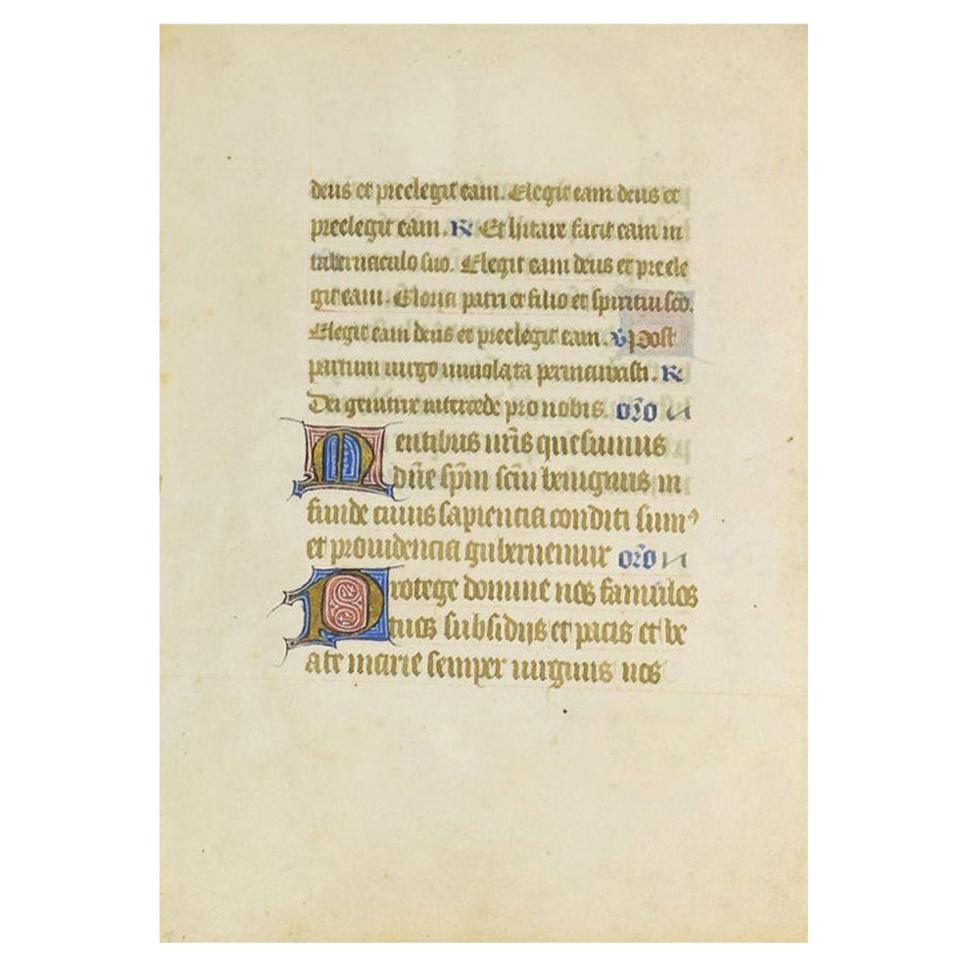 deus et preelegit eam. Elegit eam deus et
preelegit eam. R Et hitare facit eam in
tabernaculo suo. Elegit eam deus et preele
git eam. Gloria patri et filio et spiritui sco.
Elegit eam deus et preelegit eam. v Post
partum uirgo inuiolata permansisti. R
Dei genitrix intercede pro nobis. oro
Mentibus nris quesumus
dne spm scm benignus in
funde cuius sapiencia conditi sum9
et prouidencia gubernemur oro
Protege domine nos famulos
tuos subsidijs et pacis et be
ate marie semper uirginis nos